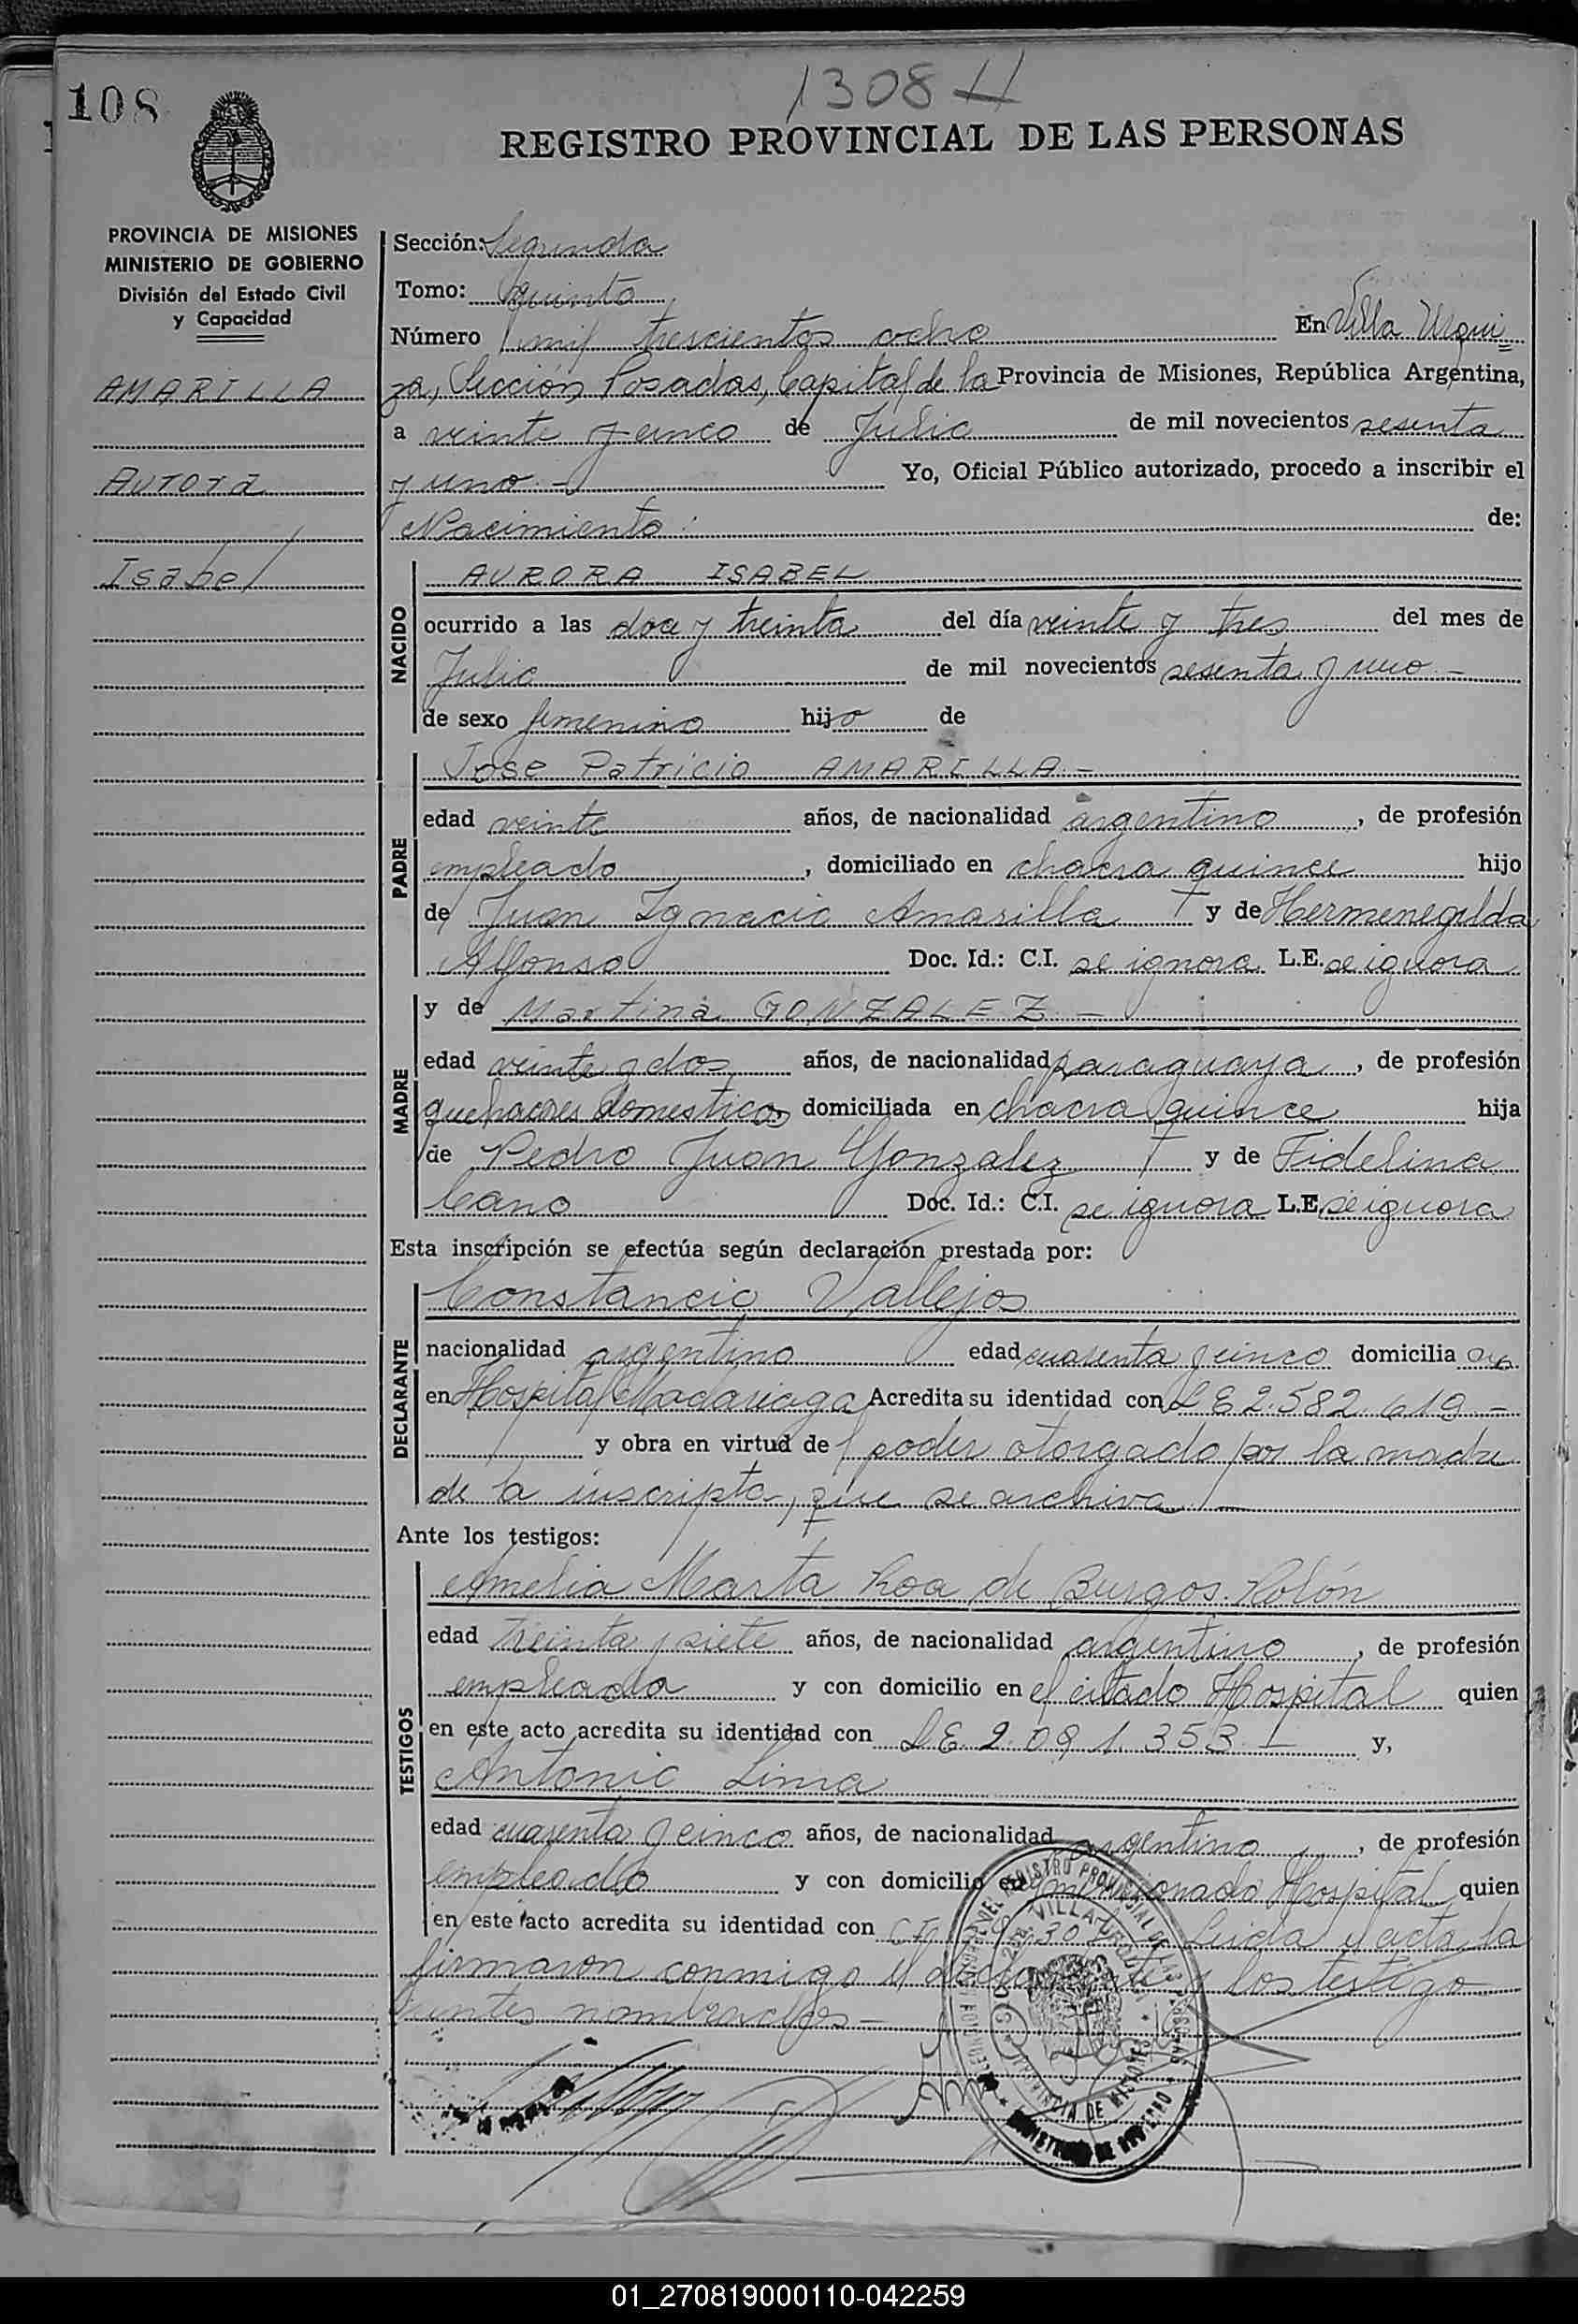 108
1308
REGISTRO PROVINCIAL DE LAS PERSONAS
PROVINCIA DE MISIONES
MINISTERIO DE GOBIERNO
División del Estado Civil
y Capacidad
AMARILLA
Aurora
Isabel
Sección: Segunda
Tomo: quinto
Número mil trescientos ocho En Villa Urqui=
za, Sección Posadas, Capital de la Provincia de Misiones, República Argentina,
a veinte y cinco de Julio de mil novecientos sesenta
y uno.- Yo, Oficial Público autorizado, procedo a inscribir el
Nacimiento: de:
NACIDO
AURORA ISABEL
ocurrido a las doce y treinta del día veinte y tres del mes de
Julio de mil novecientos sesenta y uno.-
de sexo femenino hijo de
PADRE
Jose Patricio AMARILLA.-
edad veinte años, de nacionalidad argentino, de profesión
empleado, domiciliado en chacra quince hijo
de Juan Ignacio Amarilla † y de Hermenegilda
Alfonso Doc. Id.: C.I. se ignora L.E. se ignora
MADRE
y de Martina GONZALEZ.-
edad veinte y dos años, de nacionalidad paraguaya, de profesión
quehaceres domesticos domiciliada en chacra quince hija
de Pedro Juan Gonzalez † y de Fidelina
Cano Doc. Id.: C.I. se ignora L.E. se ignora
Esta inscripción se efectúa según declaración prestada por:
DECLARANTE
Constancio Vallejos
nacionalidad argentino edad cuarenta y cinco domicilia
en Hospital Madariaga Acredita su identidad con L E 2.582.619.-
y obra en virtud del poder otorgado por la madre
de la inscripta, que se archiva.-
Ante los testigos:
TESTIGOS
Amelia Marta Roa de Burgos. Rolón
edad treinta y siete años, de nacionalidad argentino, de profesión
empleada y con domicilio en el citado Hospital quien
en este acto acredita su identidad con L.E. 2.091.353.- y,
Antonio Lima
edad cuarenta y cinco años, de nacionalidad argentino, de profesión
empleado y con domicilio en mencionado Hospital quien
en este acto acredita su identidad con Leida el acta la
firmaron conmigo el declarante y los testigo
nombrados.-
VILLA URQUIZA
PROVINCIA DE MISIONES
MINISTERIO DE GOBIERNO
01_270819000110-042259